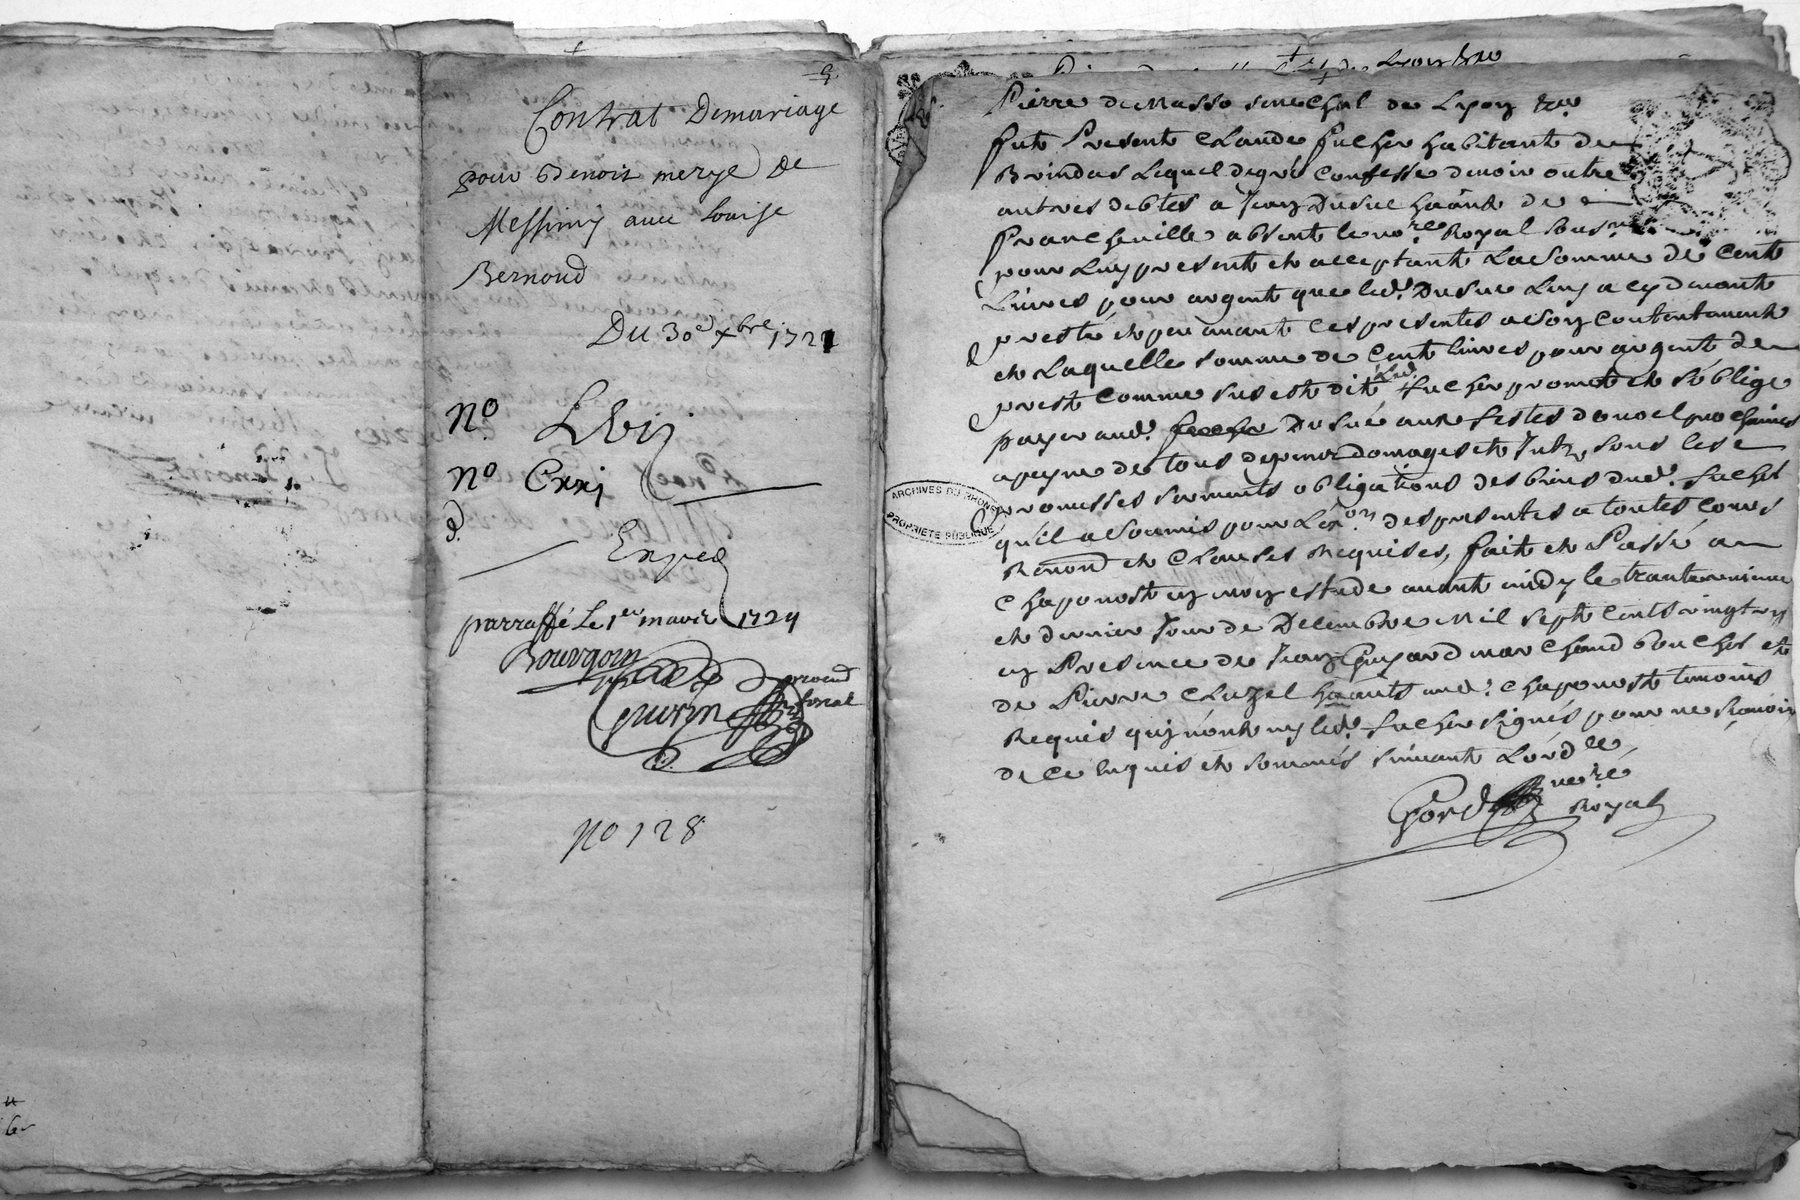 Contrat Demariage
pour Benoit merye De
Messimy avec Louise
Bernoud
Du 30e xbre 1721
No. Lvij
No Cxxj
Exped
parraffé Le 1er mars 1724
Bourgoin
Guerin
No 128
Pierre de Masso senechal de Lyon
fut Present Claude fucher habitant de
Brindas Lequel degré Confesse devoir outre
autres debtes a Jean Dusuc hãant de
francheville absent le nore Royal sousne
pour Luy present et acceptant La somme de Cent
Livres pour argent que led. Dusuc Luy a cy devant
presté et peu avant ces presentes a son Contentement
et Laquelle somme de Cent livres pour argent de
prest comme sus est dit Led. fucher promet et s'oblige
payer aud. Dusuc aux festes de noel prochaines
a peyne de tous depens domages et Intz sous les
promesses serments obligations des biens dud. fucher
qu'il a soumis pour L'exon des presentes a toutes Cours
Renond et Clauses Requises, fait et Passé a
Chaponost en mon estude avant midy le trante unieme
et dernier Jour de Decembre Mil sept Cents vingt un
en Presence de Jean Guyard marchand boucher et
de Pierre Chazel hãants aud. Chaponost temoins
Requis qui n'ont ny led. fucher signés pour ne scavoir
de ce Enquis et sommés suivant L'ordce
nore
Royal
ARCHIVES DU RHONE
PROPRIETE PUBLIQUE